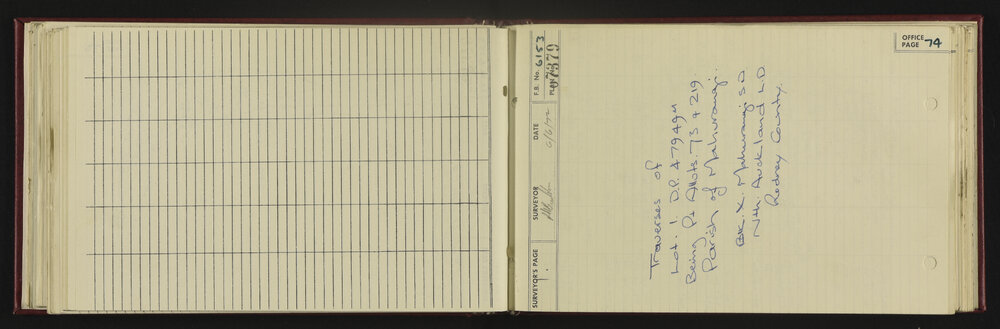 OFFICE PAGE 74
SURVEYOR'S PAGE 1.
SURVEYOR
DATE 6/6/72
F.B. No. 6153
PLAN 67379
Traverses of
Lot. 1. D.P. 47949
Being Pt Allots. 73 & 219
Parish of Mahurangi.
BK. X. Mahurangi S.D
Nth Auckland L.D.
Rodney County.